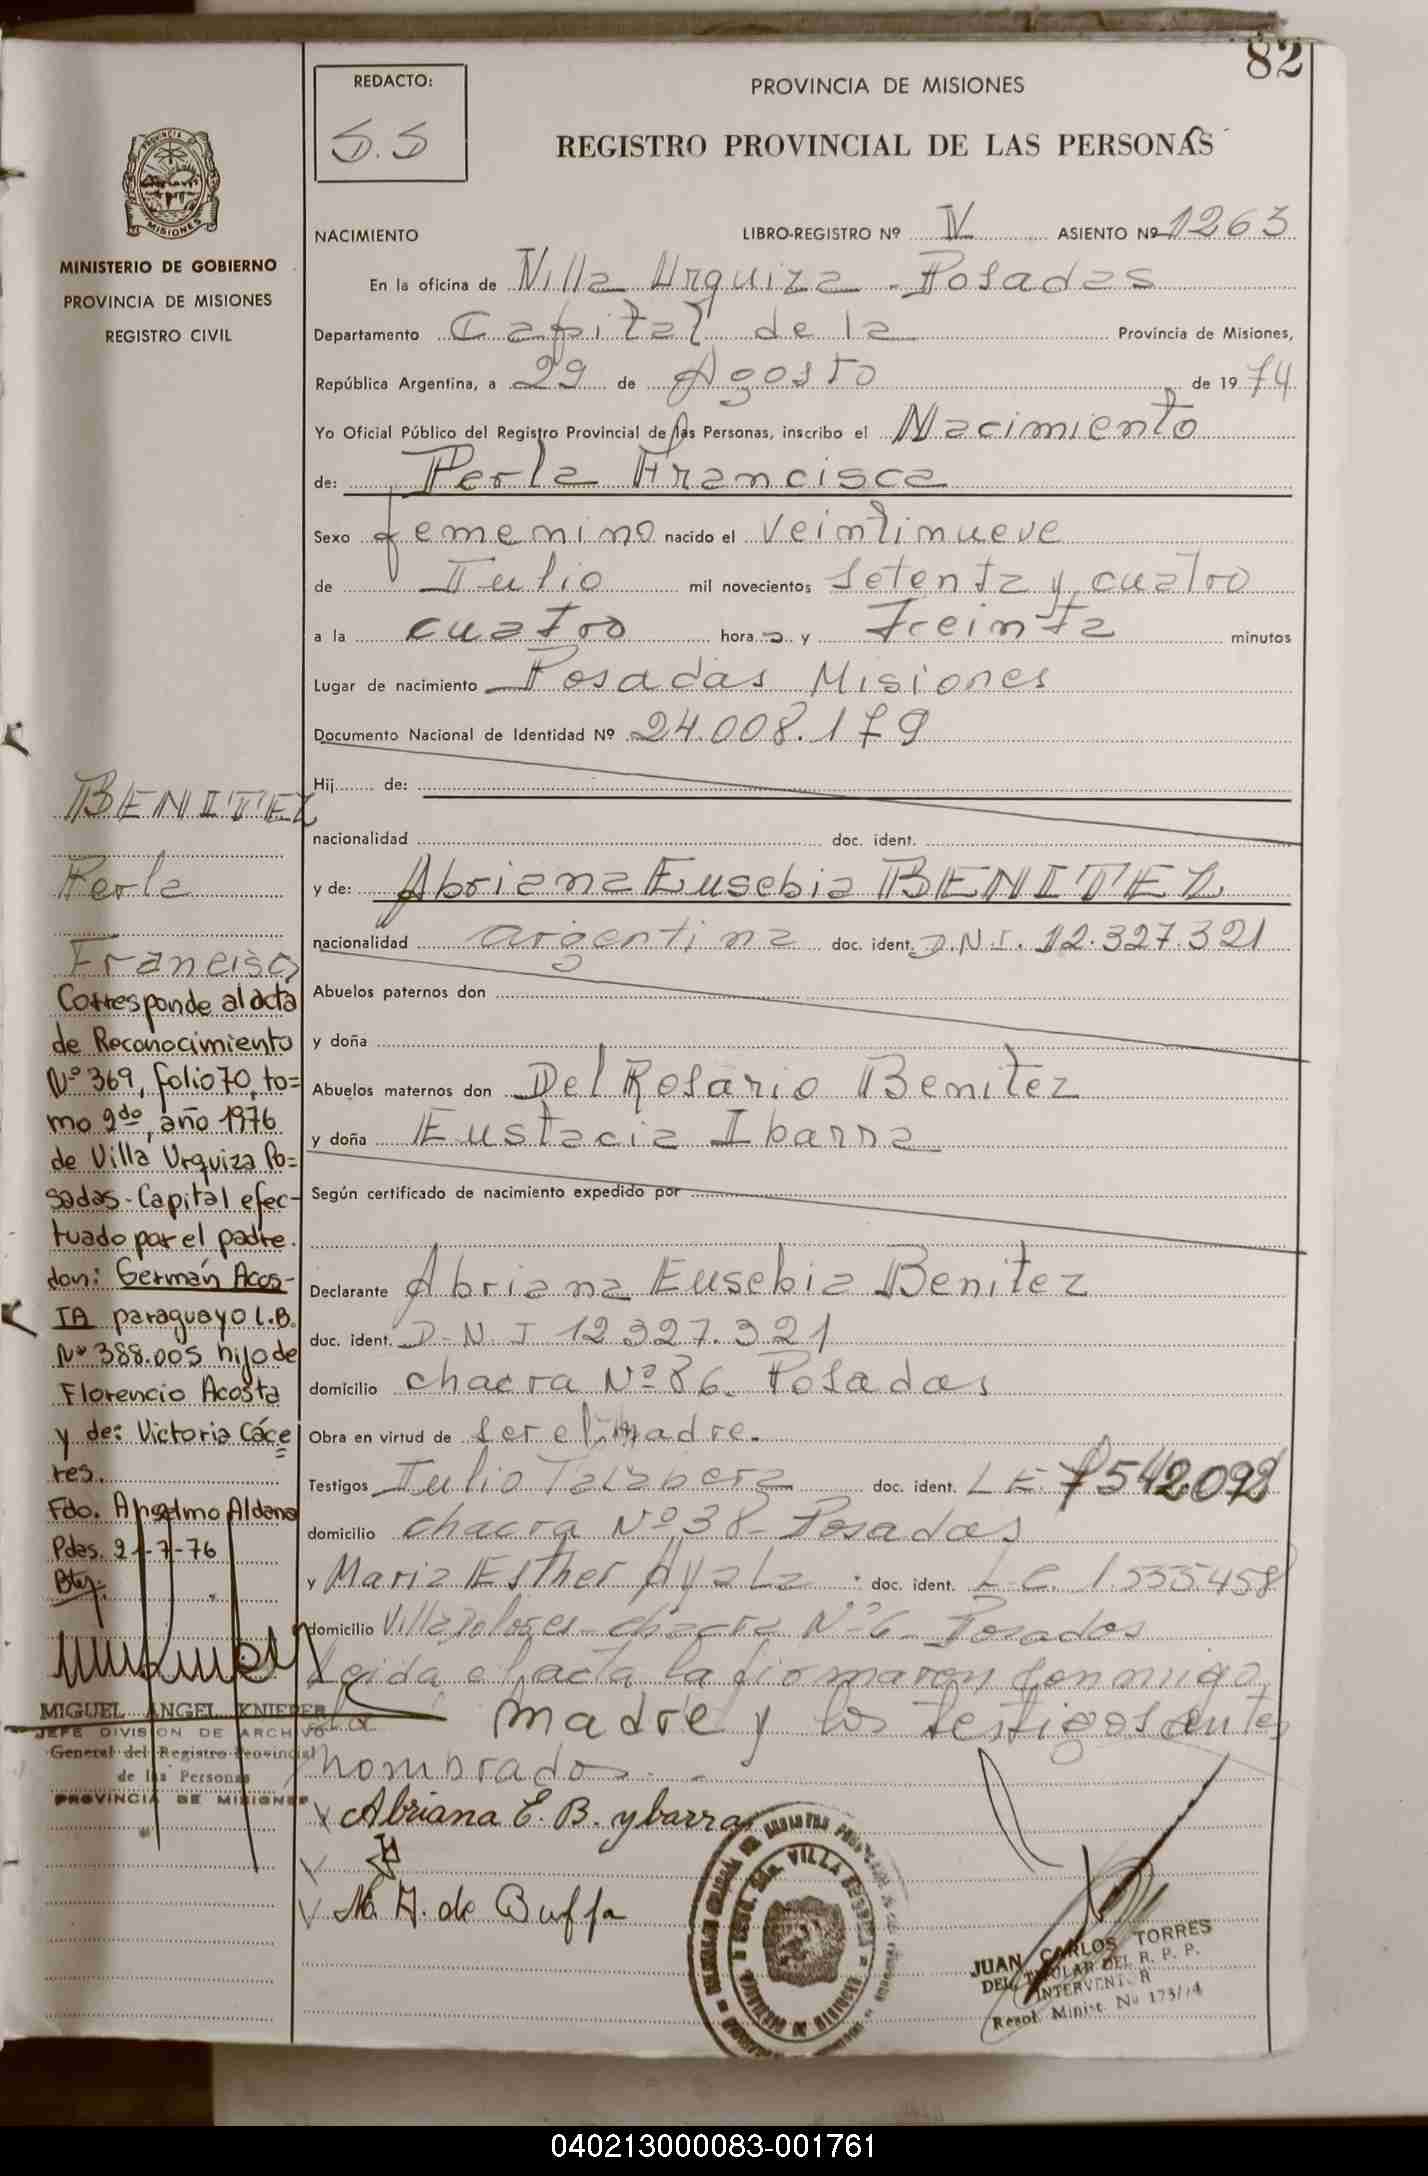 82
REDACTO:
S.S
PROVINCIA DE MISIONES
REGISTRO PROVINCIAL DE LAS PERSONAS
PROVINCIA
MISIONES
MINISTERIO DE GOBIERNO
PROVINCIA DE MISIONES
REGISTRO CIVIL
NACIMIENTO LIBRO-REGISTRO Nº IV ASIENTO Nº 1263
En la oficina de Villa Urquiza - Posadas
Departamento Capital de la Provincia de Misiones,
República Argentina, a 29 de Agosto de 1974
Yo Oficial Público del Registro Provincial de las Personas, inscribo el Nacimiento
de: Perla Francisca
Sexo femenino nacido el veintinueve
de Julio mil novecientos setenta y cuatro
a la cuatro hora s y treinta minutos
Lugar de nacimiento Posadas Misiones
Documento Nacional de Identidad Nº 24.008.179
Hij de:
nacionalidad doc. ident.
y de: Abriana Eusebia BENITEZ
nacionalidad argentina doc. ident. D.N.I. 12.327.321
Abuelos paternos don
y doña
Abuelos maternos don Del Rosario Benitez
y doña Eustacia Ibarra
Según certificado de nacimiento expedido por
Declarante Abriana Eusebia Benitez
doc. ident. D.N.I 12327.321
domicilio chacra Nº 86. Posadas
Obra en virtud de ser el madre.
Testigos Julio doc. ident. L E. 7542092
domicilio chacra Nº 38 - Posadas
y Maria Esther Ayala doc. ident. L.C. 1.555.458
domicilio Villa chacra Nº 6 - Posadas
Leida el acta la firmaron conmigo
la madre y los testigos antes
nombrados.
Abriana E. B. ybarra
M. A. de Buffa
BENITEZ
Perla
Francisca
Corresponde al acta
de Reconocimiento
Nº 369, folio 70, to=
mo 2do, año 1976
de Villa Urquiza Po=
sadas - Capital efec-
tuado por el padre.
don: Germán Acos-
TA paraguayo C.B.
Nº 388.005 hijo de
Florencio Acosta
y de: Victoria Cáce
res.
Fdo. Anselmo Aldana
Pdas. 21-7-76
MIGUEL ANGEL KNIEPER
JEFE DIVISION DE ARCHIVO
General del Registro Provincial
de las Personas
PROVINCIA DE MISIONES
VILLA URQUIZA
PROVINCIA DE MISIONES
JUAN CARLOS TORRES
DEL. TITULAR DEL R. P. P.
INTERVENTOR
Resol. Minist. Nº 173/74
040213000083-001761